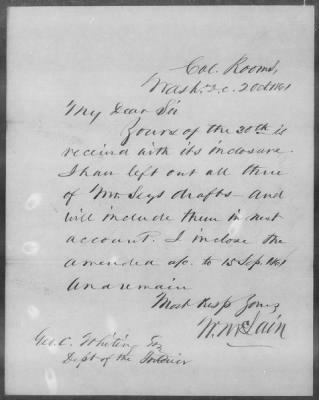 Col. Rooms,
Wash. D.C. 2 Oct 1861
My Dear Sir
Yours of the 30th is
receivd with its inclosure.
I have left out all three
of Mr. Seys drafts- and
will include them in next
account. I inclose the
amended a/c. to 15 Sep. 1861
and remain
Most Resp Yours
W. McLain
Geo. C. Whiting Esq
Dept of the Interior